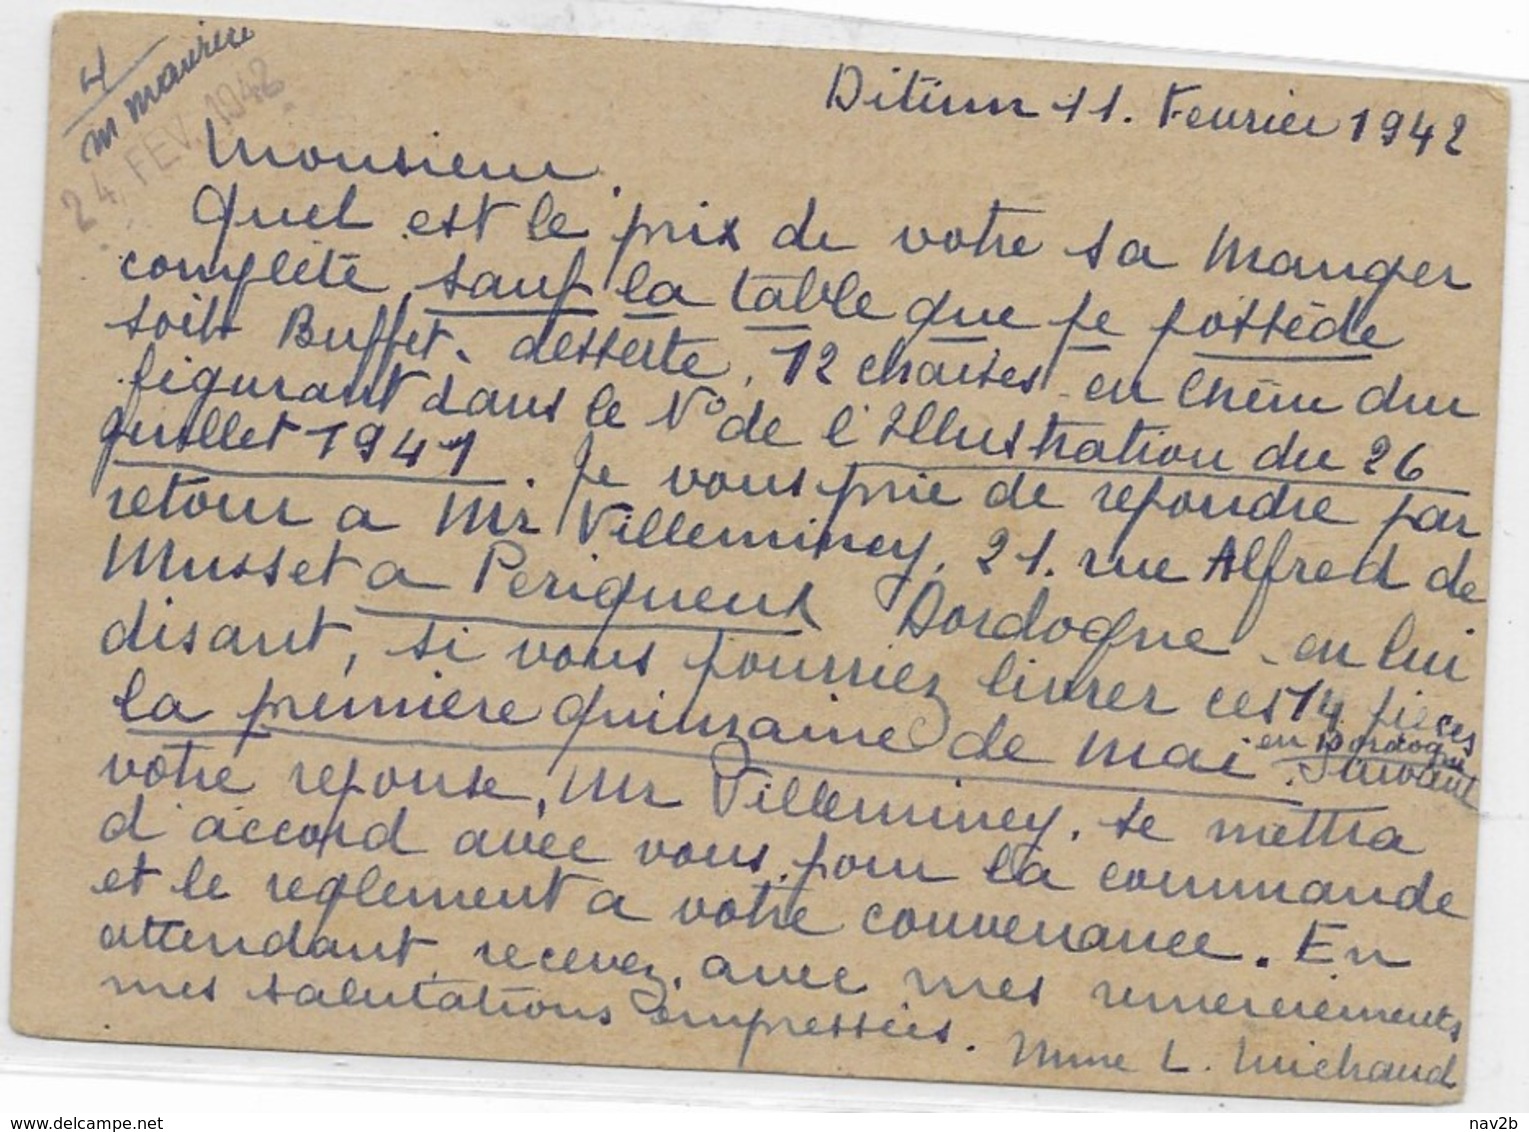 4
M Maurice
24. FEV. 1942
Ditiun 11. Fevrier 1942
Monsieur.
Quel est le prix de votre sa Manger
complète, sauf la table que je possède
soit Buffet, desserte, 12 chaises en Chêne dur
figurant dans le N° de l'Illustration du 26
juillet 1941. Je vous prie de repondre par
retour a Mr Villeminey, 21. rue Alfred de
Musset a Perigueux Dordogne - en lui
disant, si vous pourriez livrer ces 14 pièces
la première quinzaine de Mai en Dordogne. Suivant
votre reponse, Mr Villeminey. se mettra
d'accord avec vous, pour la commande
et le reglement a votre convenance. En
attendant, recevez, avec mes remerciements
mes salutations empressées. Mme L. Michaud
delcampe.net
nav2b